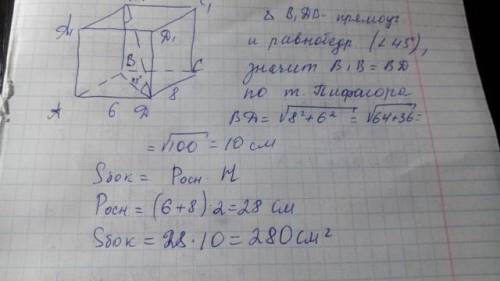 C₁
A₁
D₁
B
C
45°
A
6
D
8
Δ B₁DB- прямоуг
и равнобедр (∠45),
значит B₁B = BD
по т. Пифагора
BD = √8²+6² = √64+36 =
= √100 = 10 см
Sбок = Pосн · H
Pосн = (6+8)·2=28 см
Sбок = 28·10 = 280см²